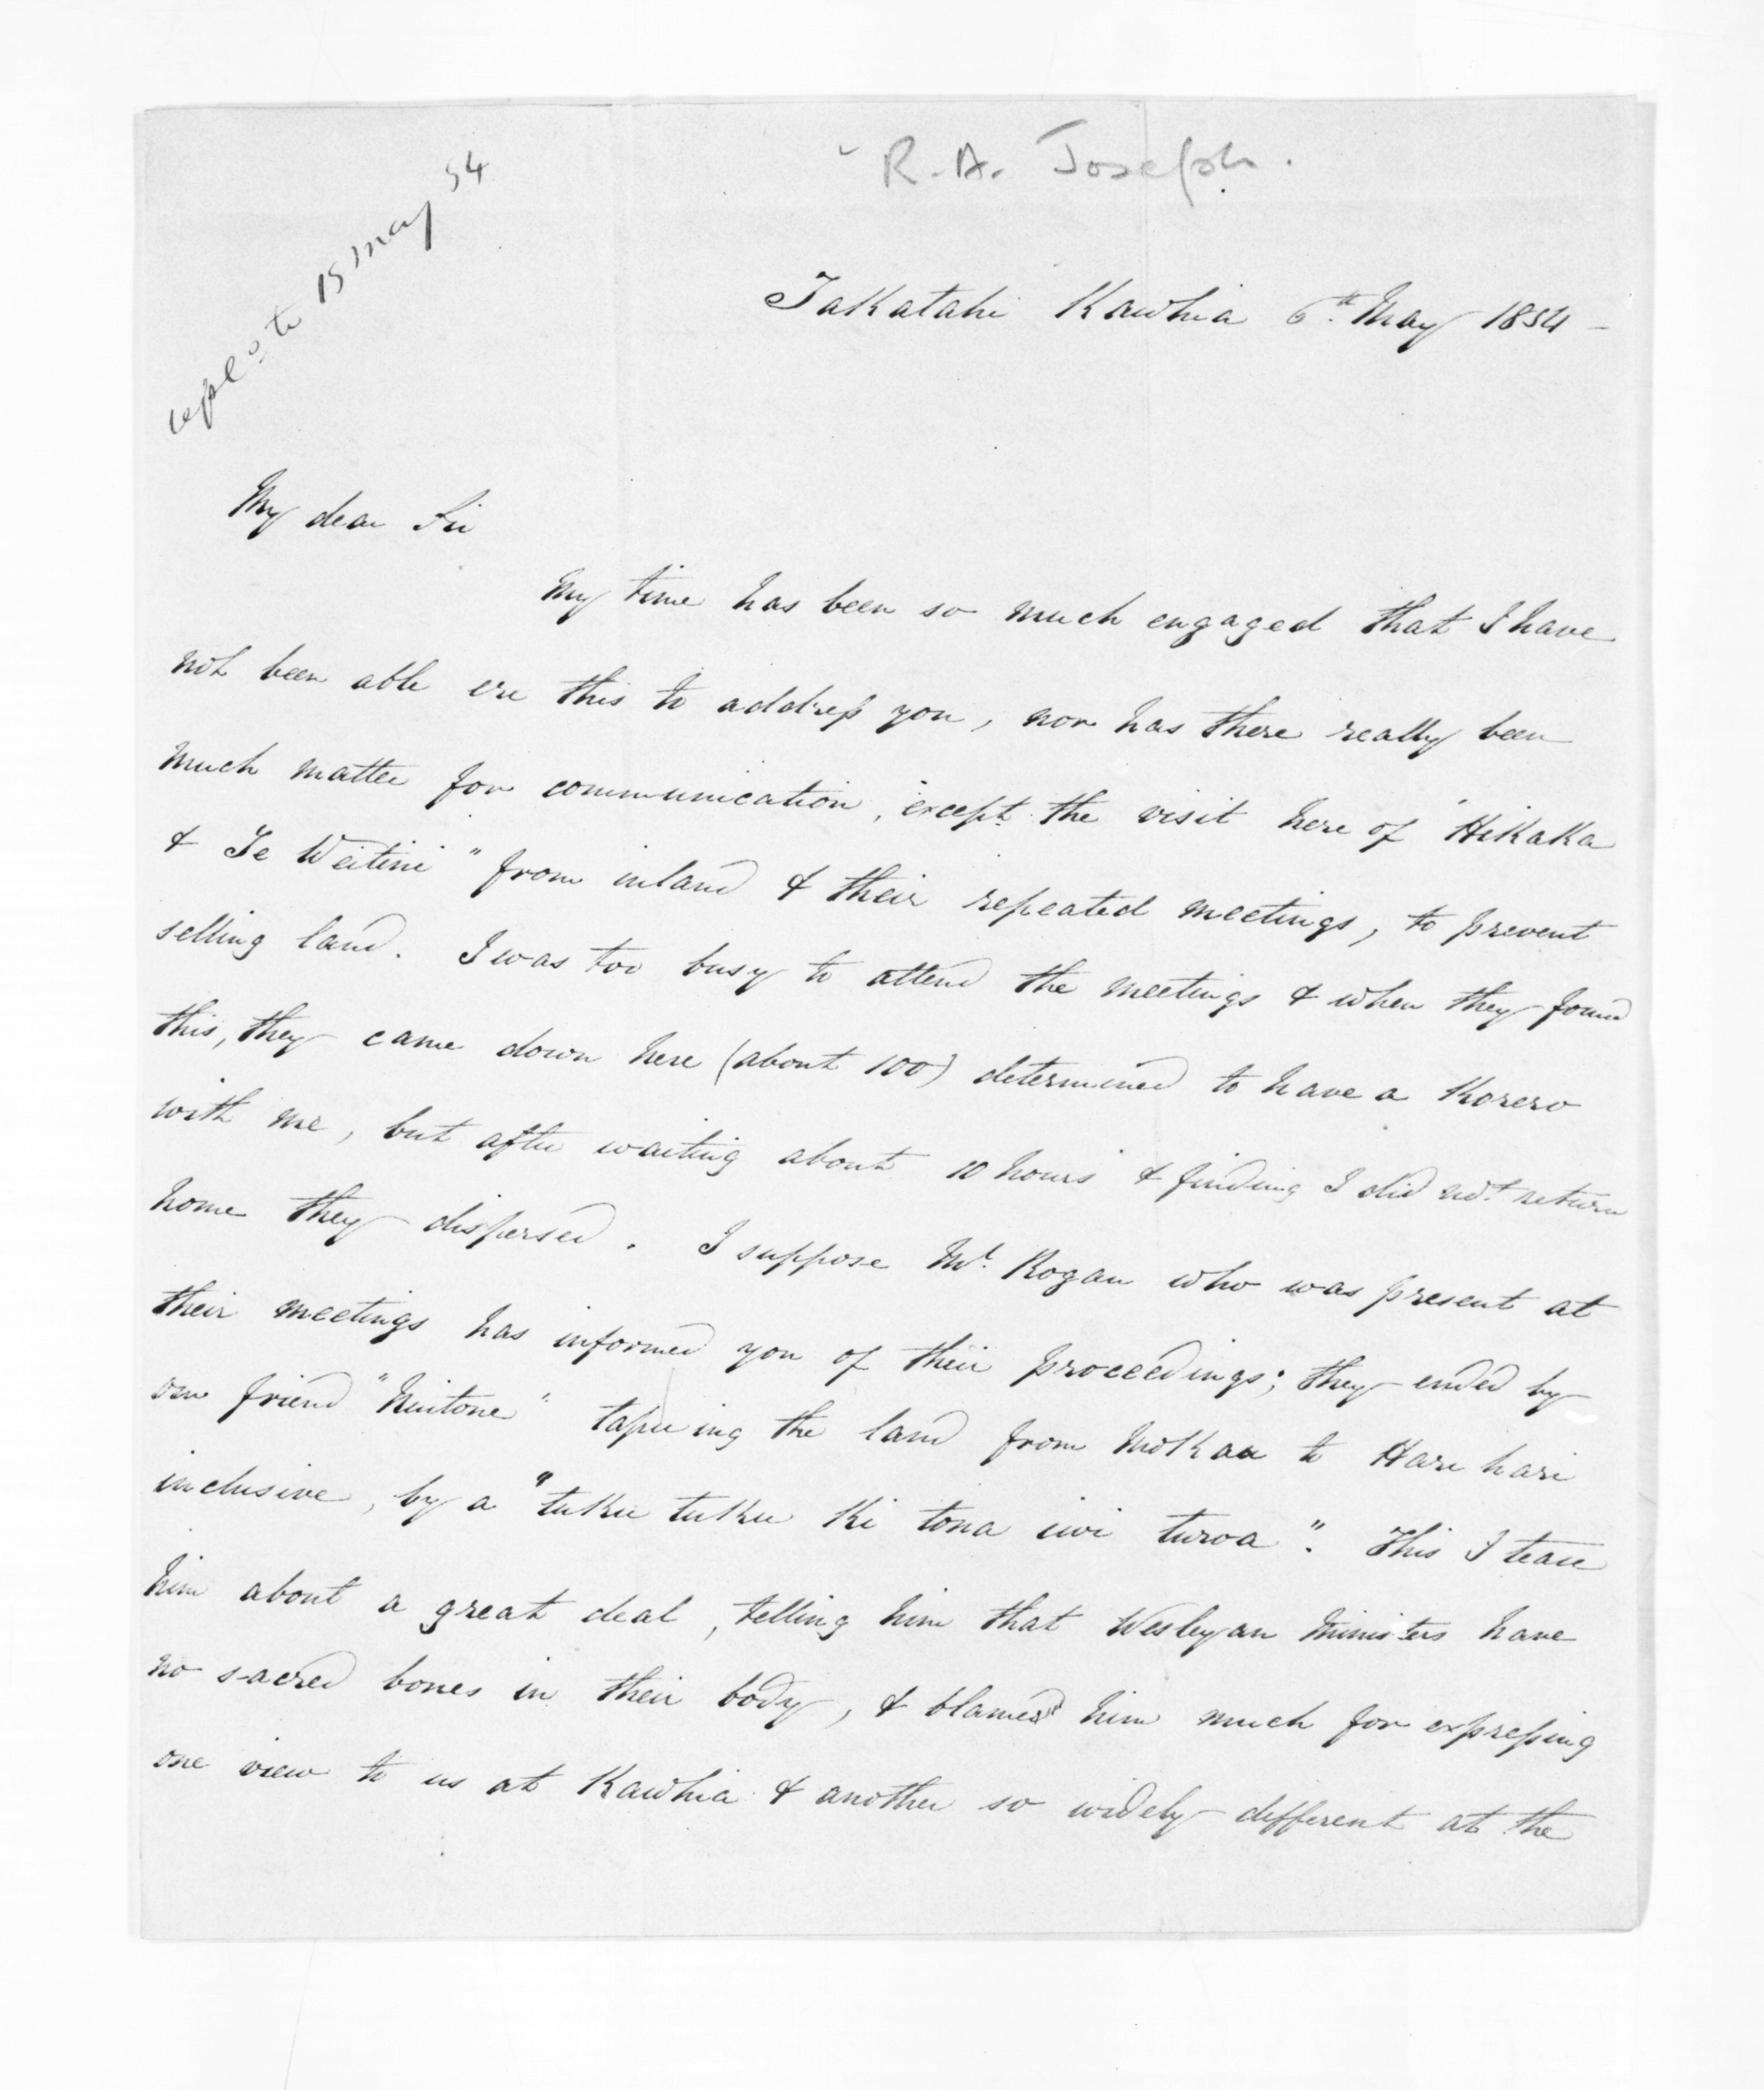 R. A. Joseph.
repld to 15 May 54
Takatahi Kawhia 6th. May 1854 -
My dear Sir
My time has been so much engaged that I have
not been able ere this to address you, nor has there really been
much matter for communication, except the visit here of "Hikaka
& Te Weitini" from inland & their repeated meetings, to prevent
selling land. I was too busy to attend the meetings & when they found
this, they came down here (about 100) determined to have a Korero
with me, but after waiting about 10 hours & finding I did not return
home they dispersed. I suppose Mr. Rogan who was present at
their meetings has informed you of their proceedings; they ended by
our friend "Niutone" tapuing the land from Mokau to Hari hari
inclusive, by a "tuku tuku ki tona iwi turoa". This I tease
him about a great deal, telling him that Wesleyan Ministers have
no sacred bones in their body, & blamed him much for expressing
one view to us at Kawhia & another so widely different at the